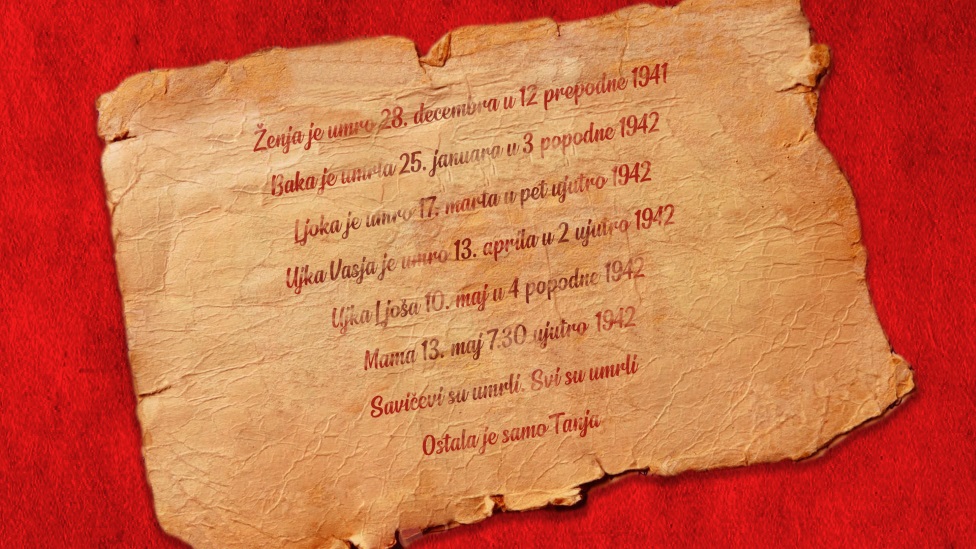 Ženja je umro 28. decembra u 12 prepodne 1941
Baka je umrla 25. januara u 3 popodne 1942
Ljoka je umro 17. marta u pet ujutro 1942
Ujka Vasja je umro 13. aprila u 2 ujutro 1942
Ujka Ljoša 10. maj u 4 popodne 1942
Mama 13. maj 7.30 ujutro 1942
Savičevi su umrli. Svi su umrli
Ostala je samo Tanja